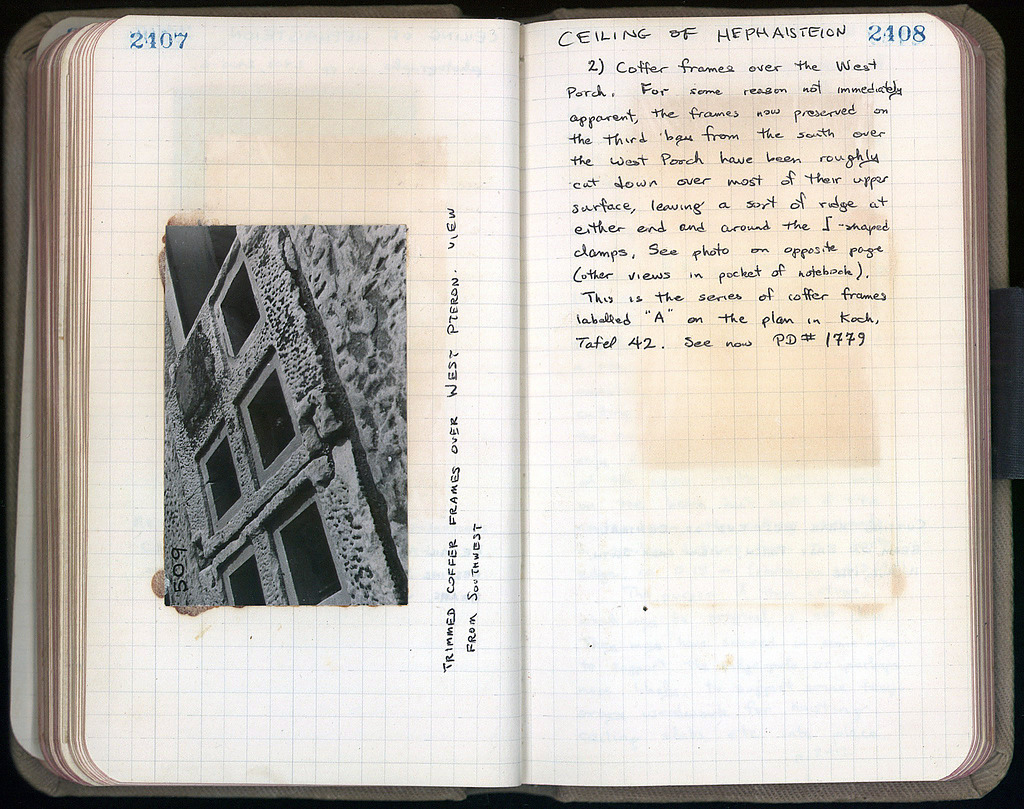 2407
509
TRIMMED COFFER FRAMES OVER WEST PTERON. VIEW
FROM SOUTHWEST
CEILING OF HEPHAISTEION 2408
2) Coffer frames over the West
Porch. For some reason not immediately
apparent, the frames now preserved on
the third bay from the south over
the West Porch have been roughly
cut down over most of their upper
surface, leaving a sort of ridge at
either end and around the ⎰-shaped
clamps. See photo on opposite page
(other views in pocket of notebook).
This is the series of coffer frames
labelled "A" on the plan in Koch,
Tafel 42. See now PD# 1779